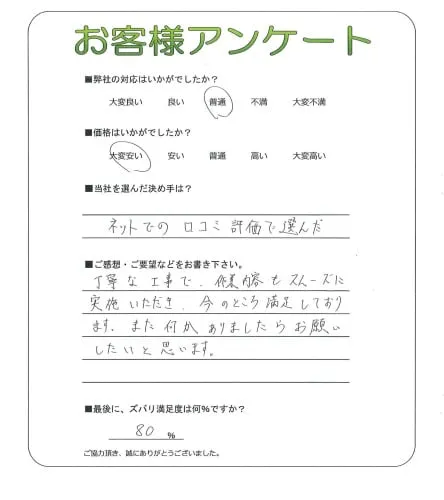 お客様アンケート
■弊社の対応はいかがでしたか?
大変良い 良い 普通 不満 大変不満
■価格はいかがでしたか?
大変安い 安い 普通 高い 大変高い
■当社を選んだ決め手は?
ネットでの口コミ評価で選んだ
■ご感想・ご要望などをお書き下さい。
丁寧な工事で、作業内容もスムーズに
実施いただき、今のところ満足しており
ます。また何かありましたらお願い
したいと思います。
■最後に、ズバリ満足度は何%ですか?
80 %
ご協力頂き、誠にありがとうございました。